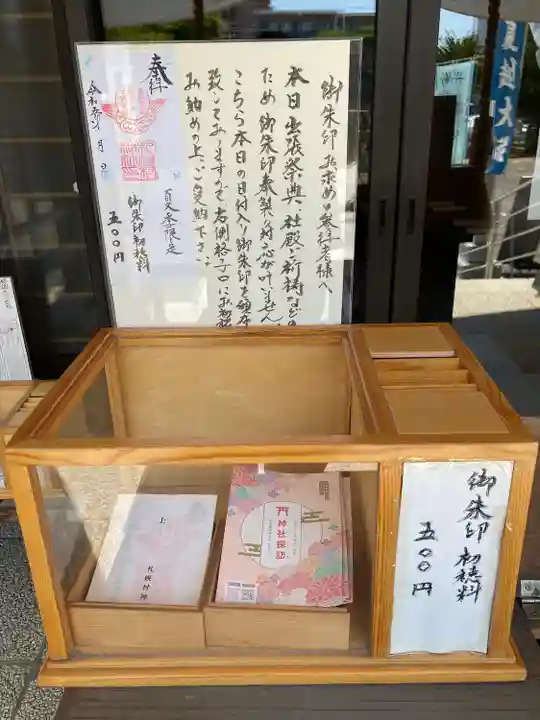 御朱印お求めの参拝者様へ
本日出張祭典、社殿ご祈祷などの
ため御朱印奉製の対応が叶いません。
こちら本日の日付入り御朱印を頒布
致しておりますので右側格子口にお初穂
お納めの上、ご受納下さい。
奉拝
月
日
夏季限定
御朱印初穂料
五〇〇円
夏越大
上
神社探訪
御朱印初穂料
五〇〇円